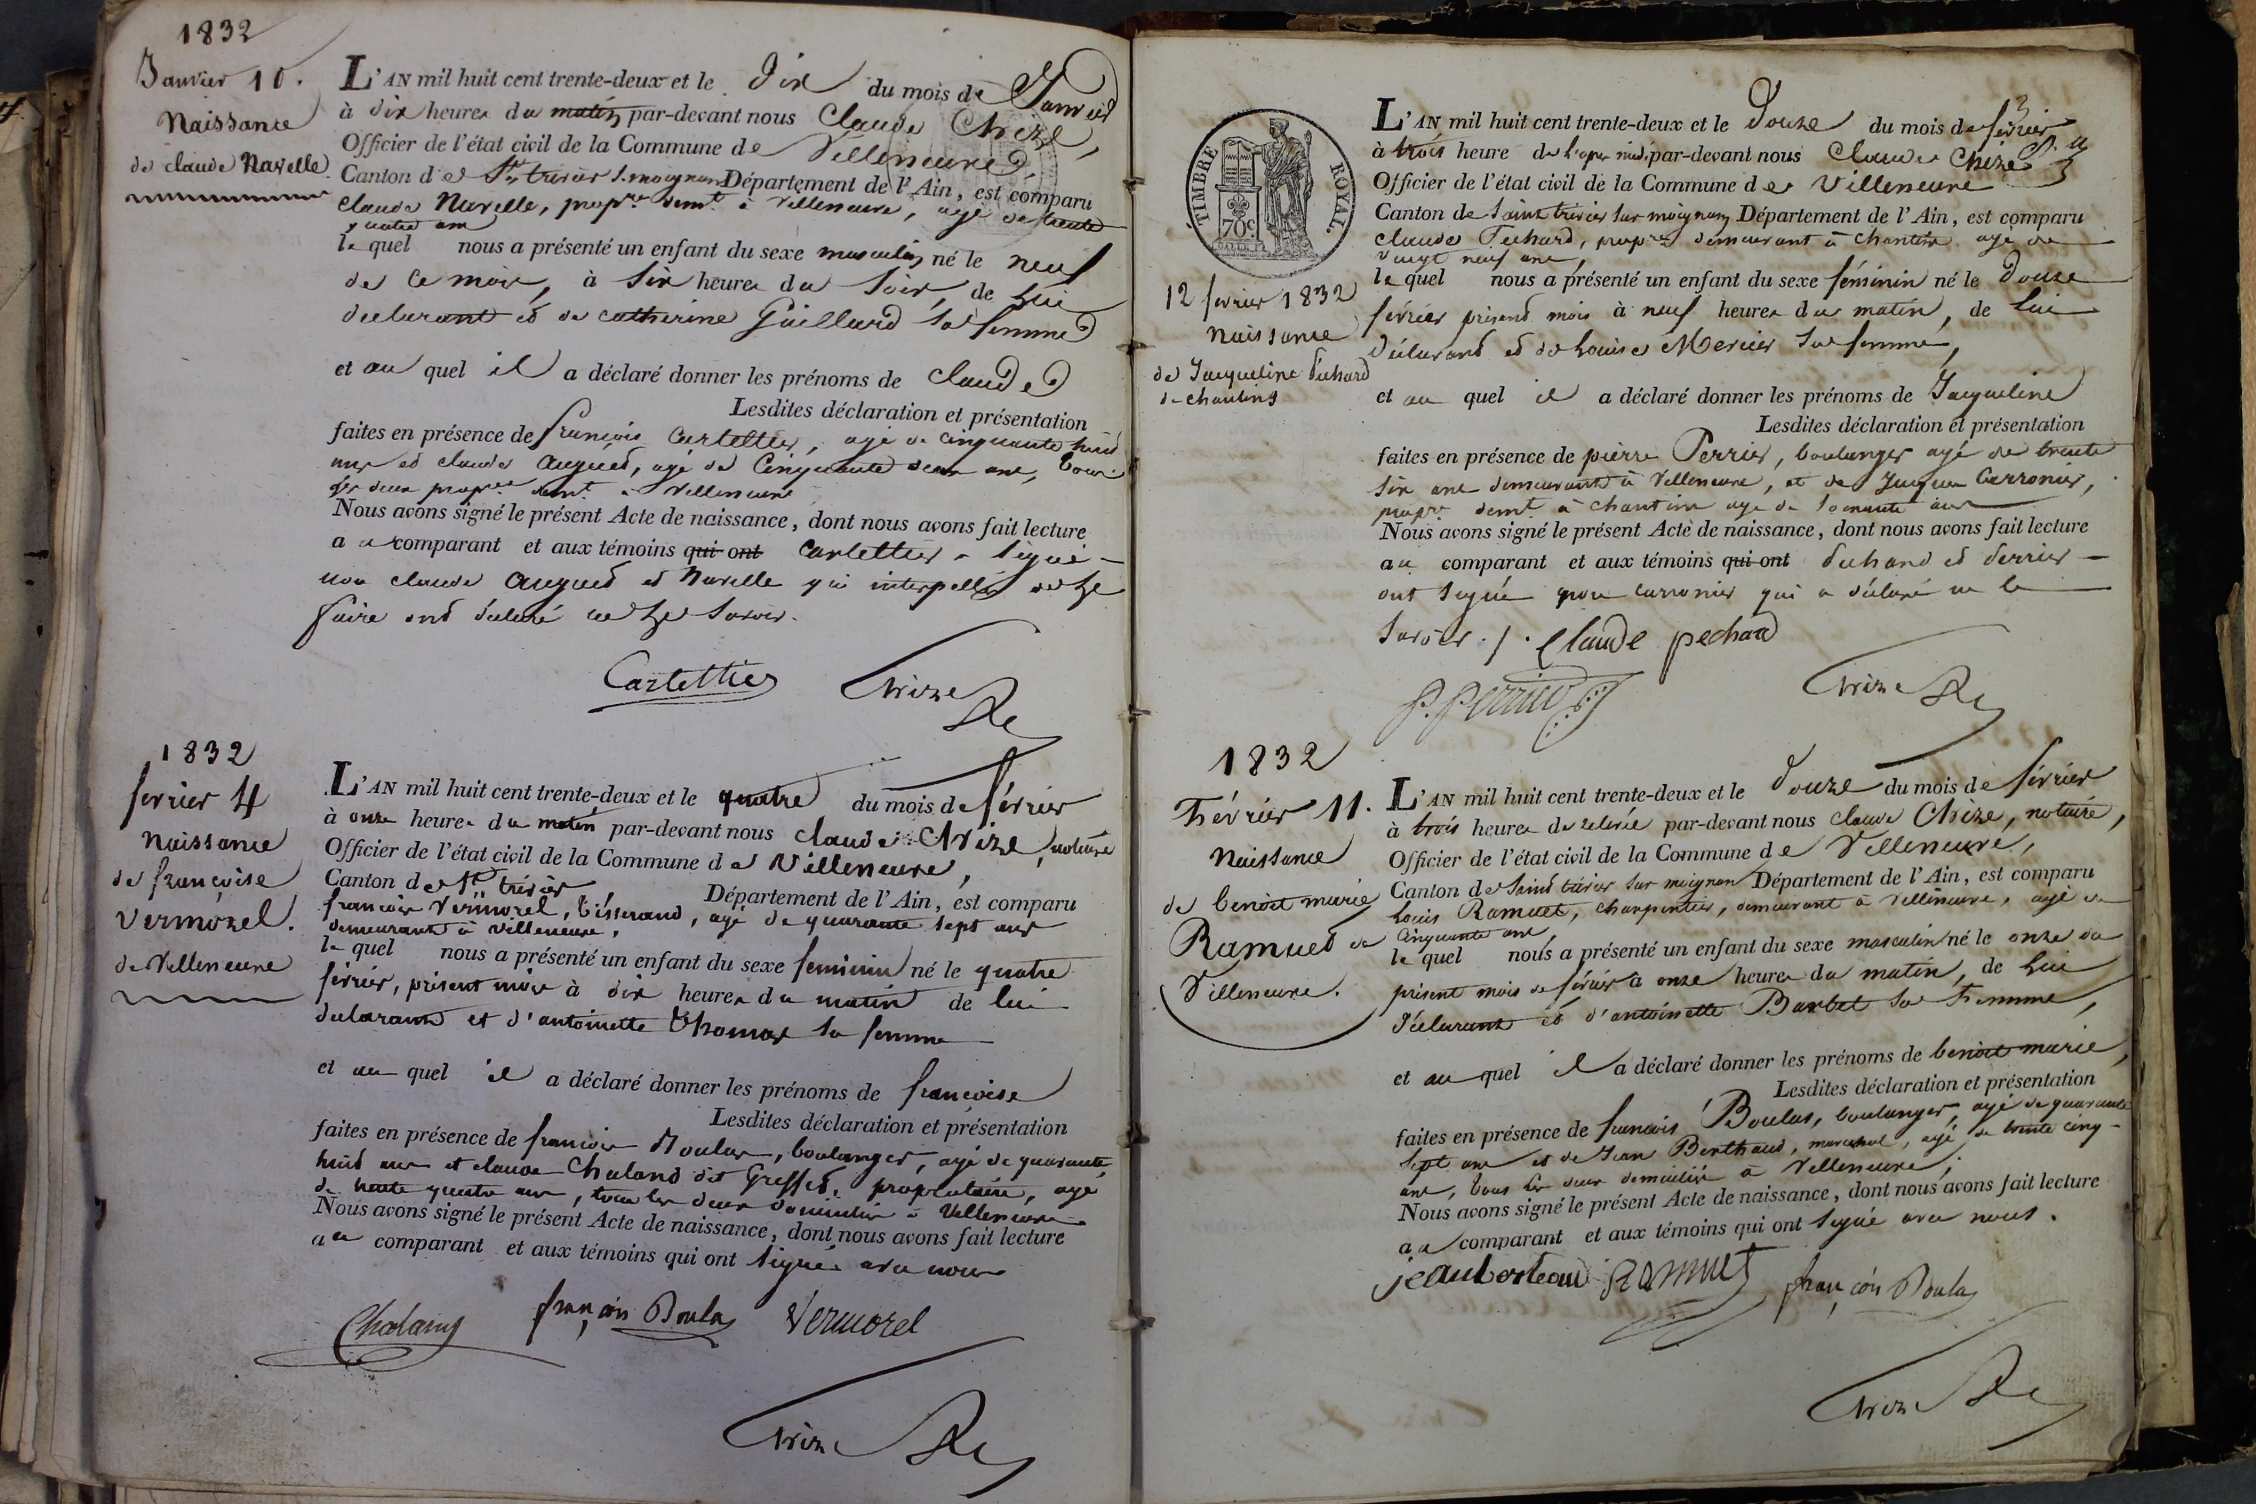 1832
Janvier 10.
Naissance
de claude Navelle
L'AN mil huit cent trente-deux et le dix du mois de Janvier
à dix heures du matin par-devant nous Claude Chize,
Officier de l'état civil de la Commune de Villeneuve,
Canton de St trivier s. moignans Département de l'Ain, est comparu
Claude Navelle, propre demt à Villeneuve, agé de trente
quatre ans
lequel nous a présenté un enfant du sexe masculin né le neuf
de ce mois, à six heures du soir, de lui
déclarant et de catherine Gaillard sa femme
et au quel il a déclaré donner les prénoms de Claude
Lesdites déclaration et présentation
faites en présence de françois Carlettier, agé de cinquante huit
ans et claude augued, agé de Cinquante deux ans, tous
les deux propres demt à Villeneuve
Nous avons signé le présent Acte de naissance, dont nous avons fait lecture
au comparant et aux témoins qui ont Carlettier a signé
non claude augued et Navelle qui interpellés de le
faire ont déclaré ne le savoir.
Carlettier Chize
1832
fevrier 4
Naissance
de françoise
Vermorel.
de Villeneuve
L'AN mil huit cent trente-deux et le quatre du mois de février
à onze heures du matin par-devant nous claude Chize, notaire
Officier de l'état civil de la Commune de Villeneuve,
Canton de St trivier Département de l'Ain, est comparu
françois Vermorel, tisserand, agé de quarante sept ans
demeurant à Villeneuve,
lequel nous a présenté un enfant du sexe feminin né le quatre
février, présent mois à dix heures du matin de lui
déclarant et d'antoinette Thomas sa femme
et au quel il a déclaré donner les prénoms de françoise
Lesdites déclaration et présentation
faites en présence de françois Boulas, boulanger, agé de quarante
huit ans et claude Chaland dit Gresset, propriétaire, agé
de trente quatre ans, tous les deux domiciliés à Villeneuve
Nous avons signé le présent Acte de naissance, dont nous avons fait lecture
au comparant et aux témoins qui ont signé avec nous
françois Boula Vermorel
Chize
TIMBRE ROYAL.
70c.
12 fevrier 1832
Naissance
de Jacqueline Pechard
de chantins
L'AN mil huit cent trente-deux et le douze du mois de février
à trois heure de l'apres midi par-devant nous Claude Chize
Officier de l'état civil de la Commune de Villeneuve
Canton de Saint trivier sur moignans Département de l'Ain, est comparu
claude Pechard, propre demeurant à Chantins agé de
vingt neuf ans,
lequel nous a présenté un enfant du sexe féminin né le douze
février présent mois à neuf heures du matin, de lui
déclarant et de Louise Mercier sa femme,
et au quel il a déclaré donner les prénoms de Jacqueline
Lesdites déclaration et présentation
faites en présence de pierre Perrier, boulanger agé de trente
six ans demeurant à Villeneuve, et de Jacques Carronier,
propre demt à Chantins agé de soixante ans
Nous avons signé le présent Acte de naissance, dont nous avons fait lecture
au comparant et aux témoins qui ont Pechard et Perrier
ont signé non carronier qui a déclaré ne le
savoir. /. Claude pechard
P. Perrier Chize
1832
Février 11.
Naissance
de benoit marie
Ramuet de
Villeneuve.
L'AN mil huit cent trente-deux et le douze du mois de février
à trois heures de relevée par-devant nous claude Chize, notaire,
Officier de l'état civil de la Commune de Villeneuve,
Canton de Saint trivier sur moignans Département de l'Ain, est comparu
Louis Ramuet, Charpentier, demeurant à Villeneuve, agé de
cinquante ans,
lequel nous a présenté un enfant du sexe masculin né le onze du
présent mois de février à onze heures du matin, de lui
déclarant et d'antoinette Barbet sa femme,
et au quel il a déclaré donner les prénoms de benoit marie,
Lesdites déclaration et présentation
faites en présence de françois Boulas, boulanger, agé de quarante
sept ans et de Jean Berthaud, marechal, agé de trente cinq
ans, tous les deux domiciliés à Villeneuve,
Nous avons signé le présent Acte de naissance, dont nous avons fait lecture
au comparant et aux témoins qui ont signé avec nous.
Ramuet françois Boula
Chize